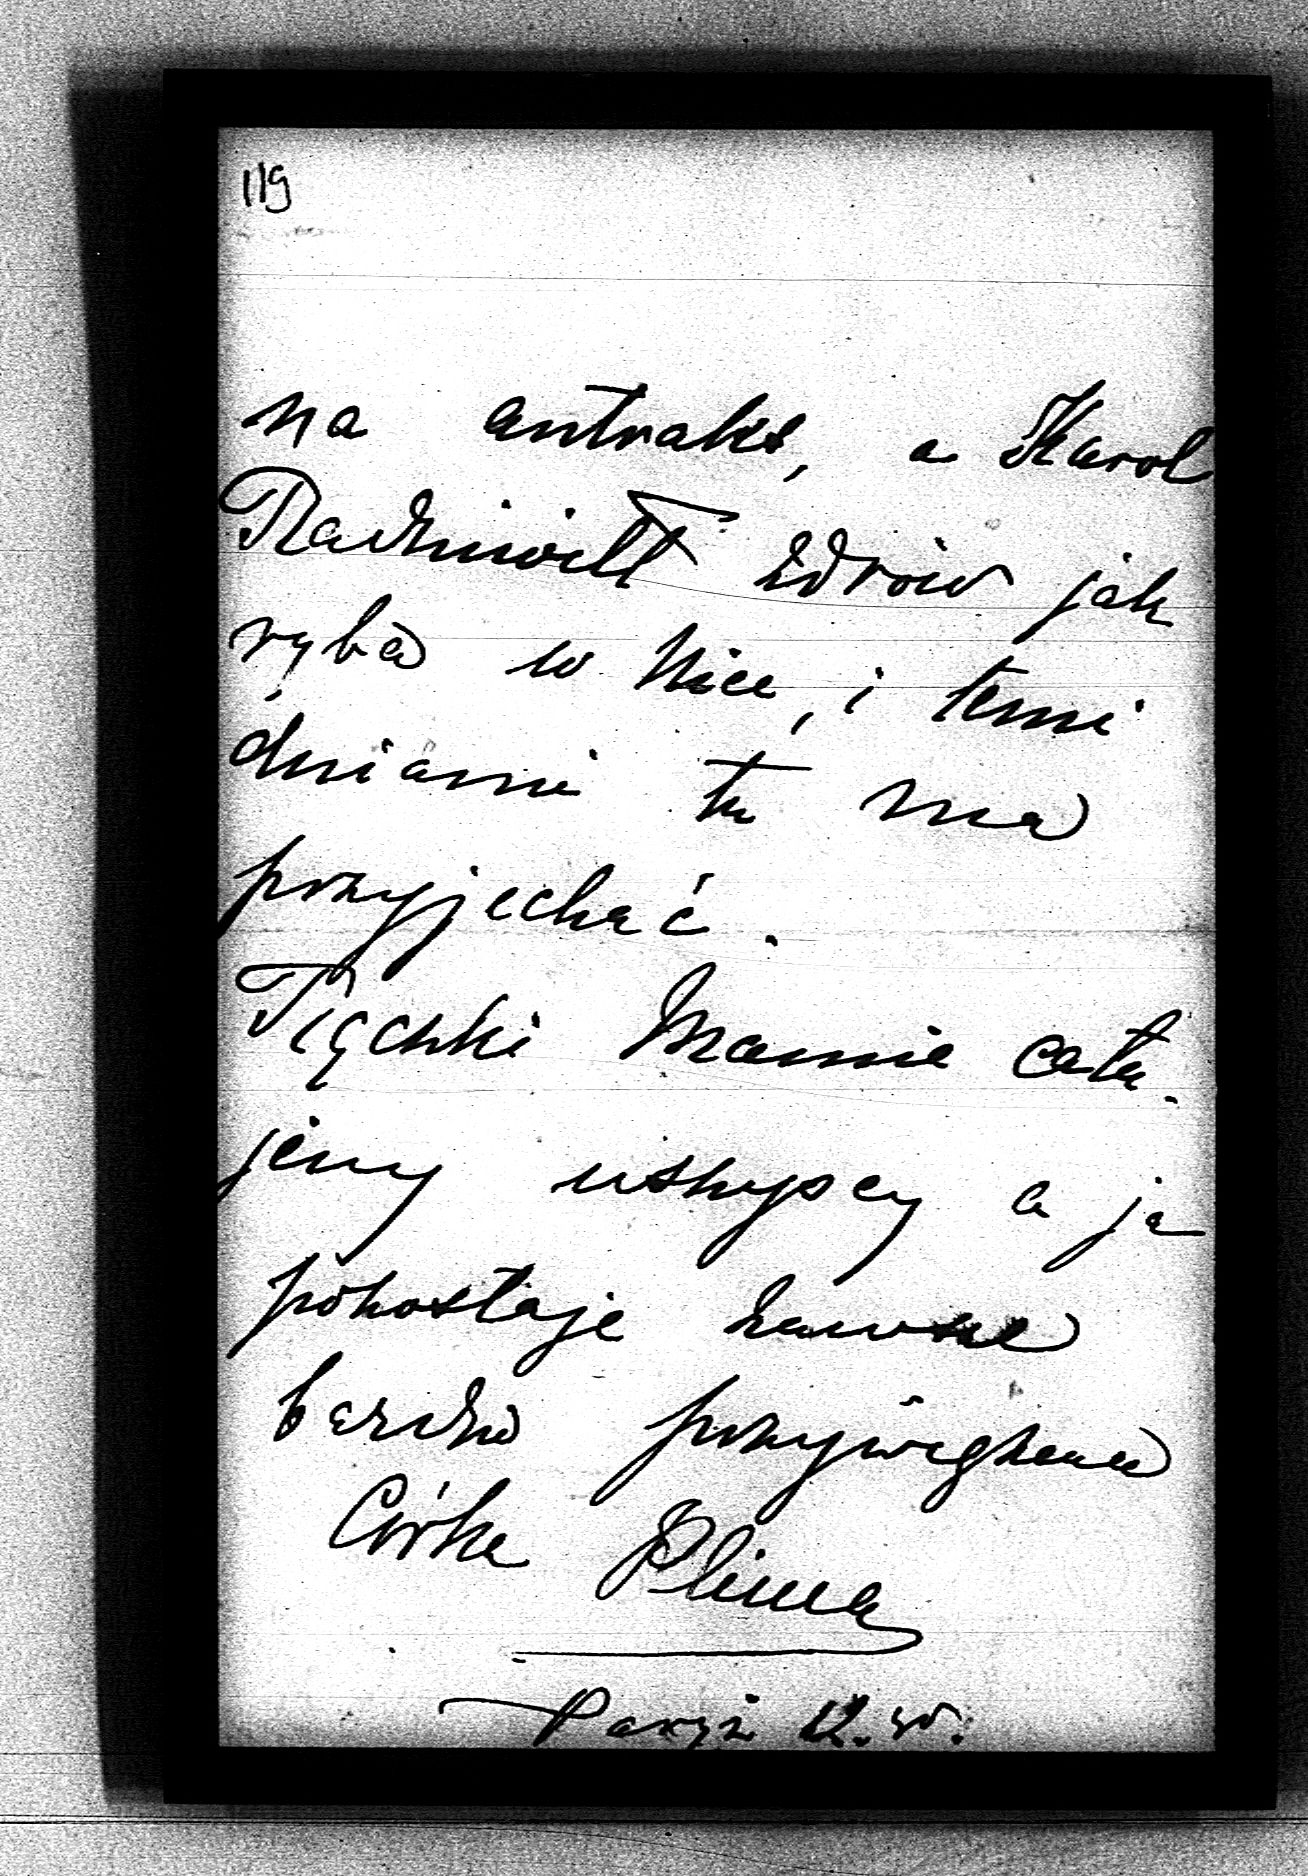 119
na antraks, a Karol
Radziwiłł zdrów jak
ryba w Nice, i temi
dniami tu ma
przyjechać.
Rączki Mamie cału-
jemy wszyscy a ja
pozostaje zawsze
bardzo przywiązana
Córka
Paryż 12.